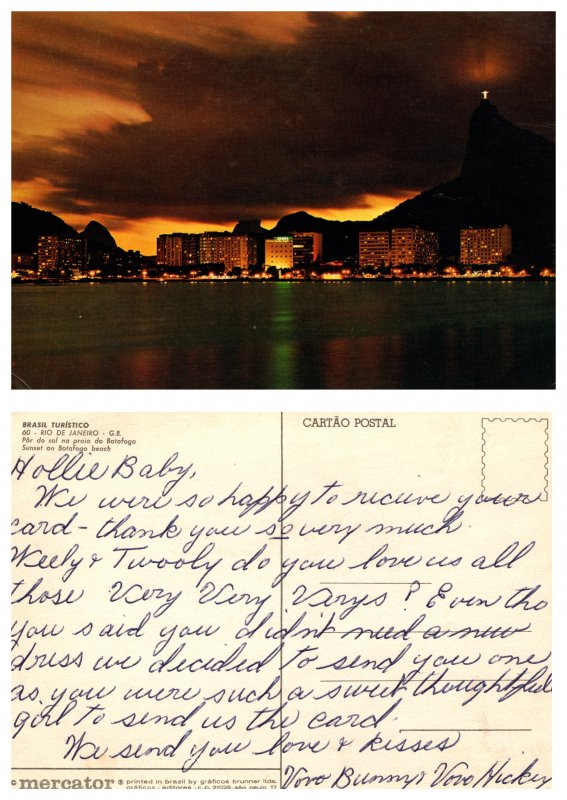 BRASIL TURÍSTICO
60 - RIO DE JANEIRO - G.B.
Pôr do sol na praia do Botafogo
Sunset on Botafogo beach
CARTÃO POSTAL
Hollie Baby,
We were so happy to recieve your
card - thank you so very much.
Weely & Twooly do you love us all
those Very Very Verys? Even tho
you said you didn't need a new
dress we decided to send you one
as you were such a sweet thoughtful
girl to send us the card.
We send you love & kisses
Vovo Bunny & Vovo Hickey
mercator ® printed in brazil by gráficos brunner ltda.
gráficos - editores - c.p. 21029 - são paulo 17